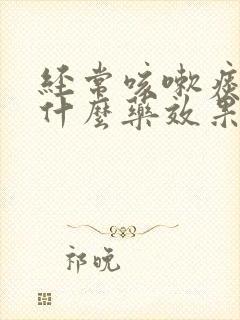 経常咳嗽痰
什麼藥效果
祁晚